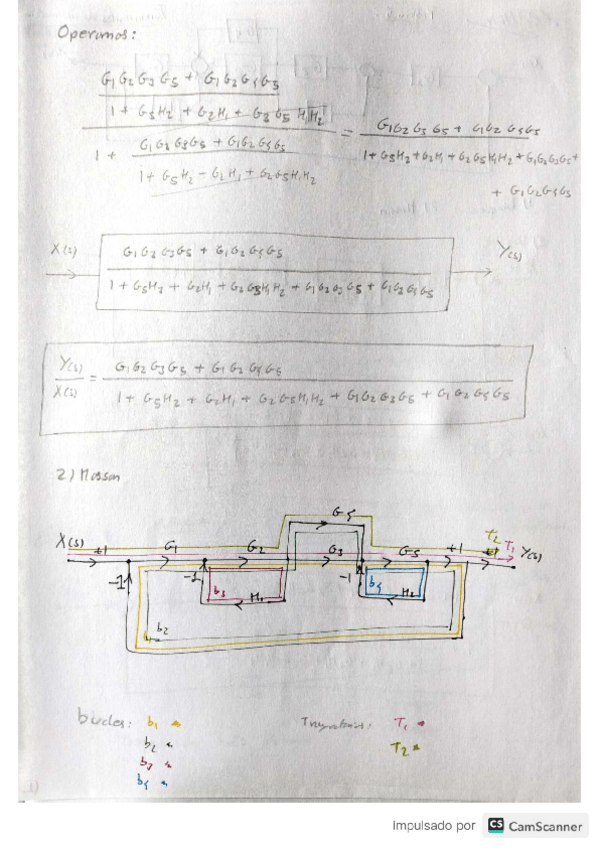 Operamos:
G1 G2 G3 G5 + G1 G2 G4 G5
1 + G5H2 + G2H1 + G2 G5 H1H2
1 +
G1 G2 G3G5 + G1G2G4G5
1 + G5H2 - G2H1 + G2G5H1H2
=
G1G2 G3 G5 + G1G2 G4G5
1+G5H2+G2H1+G2G5H1H2+G1G2G3G5+
+ G1G2G4G5
X(s)
G1G2G3G5 + G1G2G4G5
1 + G5H2 + G2H1 + G2G5H1H2 + G1G2G3G5 + G1G2G4G5
Y(s)
Y(s)
X(s)
=
G1G2G3G5 + G1G2G4G5
1 + G5H2 + G2H1 + G2G5H1H2 + G1G2G3G5 + G1G2G4G5
2) Mason
G4
X(s) +1 G1 G2 G3 G5 +1 T2 T1 Y(s)
-1 -1 b3 H1 -1 b4 H2
b2
bucles: b1
b2
b3
b4
T1
T2
Impulsado por CS CamScanner